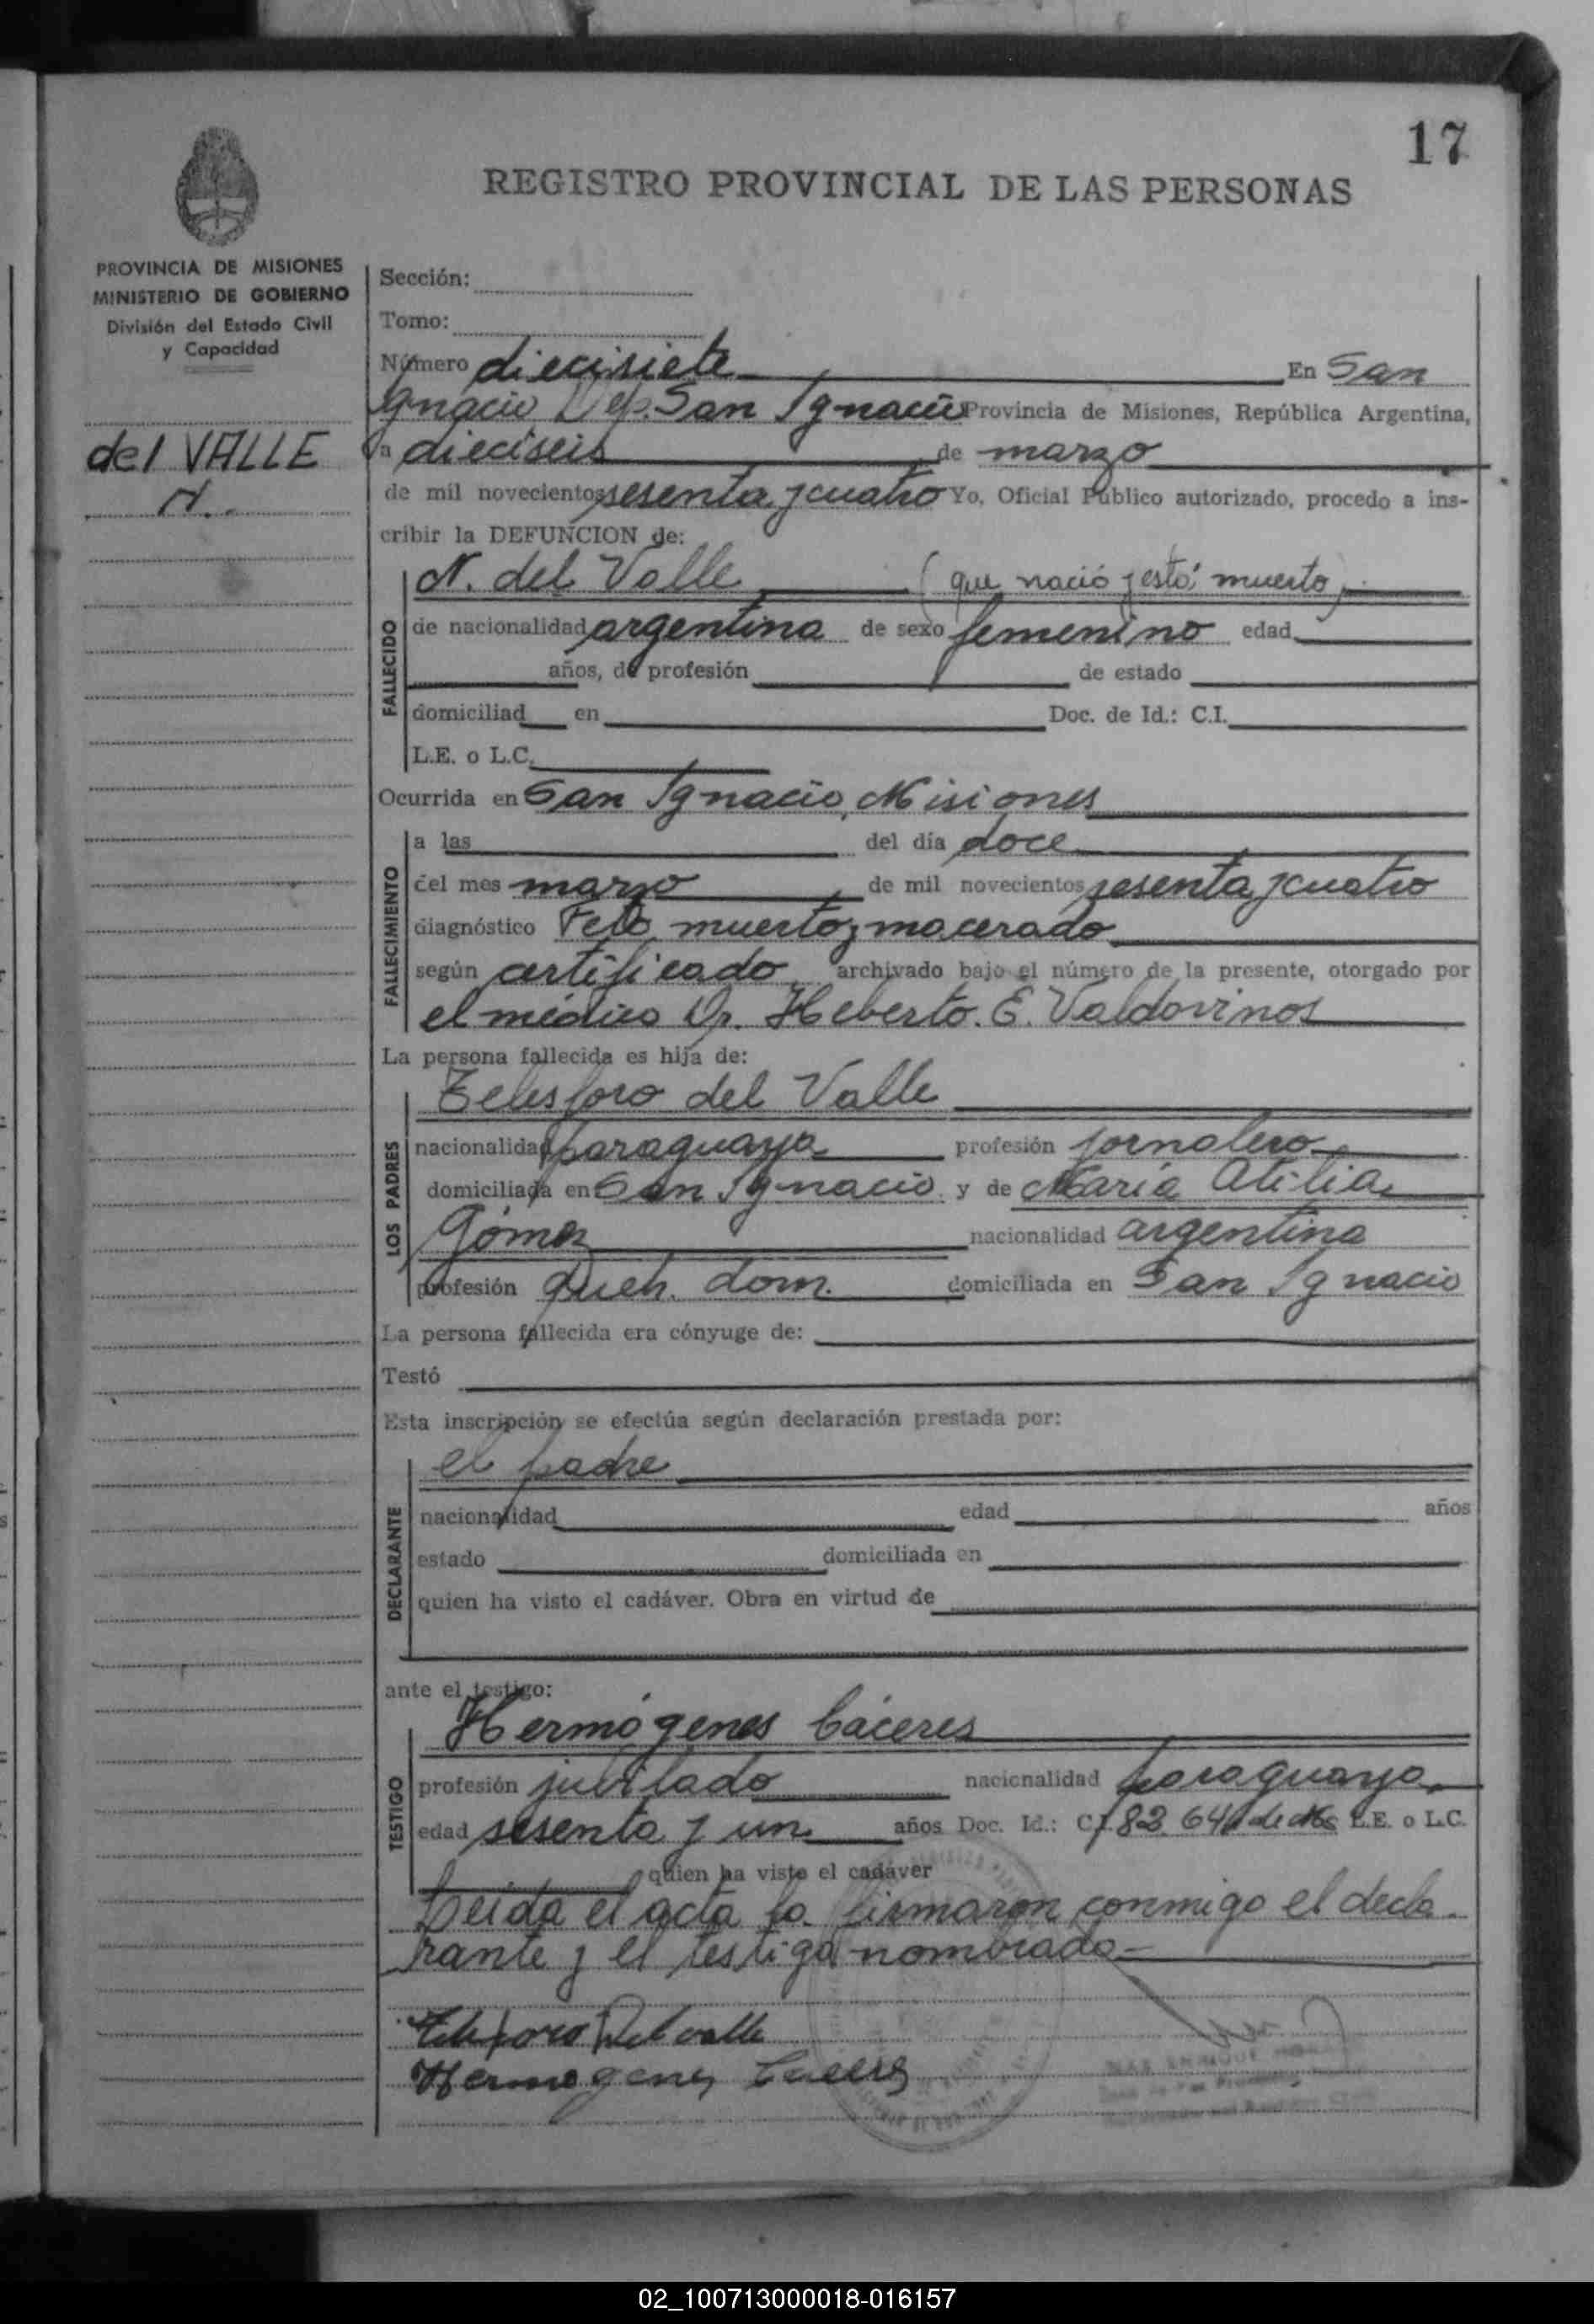 17
REGISTRO PROVINCIAL DE LAS PERSONAS
PROVINCIA DE MISIONES
MINISTERIO DE GOBIERNO
División del Estado Civil
y Capacidad
del VALLE
N.
Sección:
Tomo:
Número diecisiete En San
Ignacio Dep. San Ignacio Provincia de Misiones, República Argentina,
a dieciseis de marzo
de mil novecientos sesenta y cuatro Yo, Oficial Público autorizado, procedo a ins-
cribir la DEFUNCION de:
FALLECIDO
N. del Valle (que nació y está muerto)
de nacionalidad argentina de sexo femenino edad
años, de profesión de estado
domiciliad en Doc. de Id.: C.I.
L.E. o L.C.
Ocurrida en San Ignacio, Misiones
FALLECIMIENTO
a las del día doce
del mes marzo de mil novecientos sesenta y cuatro
diagnóstico Feto muerto y macerado
según certificado archivado bajo el número de la presente, otorgado por
el médico Dr. Heberto. E. Valdovinos
La persona fallecida es hija de:
LOS PADRES
Telesforo del Valle
nacionalidad paraguaya profesión jornalero
domiciliada en San Ignacio y de María Atilia
Gómez nacionalidad argentina
profesión Queh. dom. domiciliada en San Ignacio
La persona fallecida era cónyuge de:
Testó
Esta inscripción se efectúa según declaración prestada por:
DECLARANTE
el padre
nacionalidad edad años
estado domiciliada en
quien ha visto el cadáver. Obra en virtud de
ante el testigo:
TESTIGO
Hermógenes Cáceres
profesión jubilado nacionalidad paraguaya
edad sesenta y un años Doc. Id.: C.I. 82.641 de Ms L.E. o L.C.
quien ha visto el cadáver
Leída el acta la firmaron conmigo el decla-
rante y el testigo nombrado.-
Telesforo Del valle
Hermogenes Caceres
02_100713000018-016157